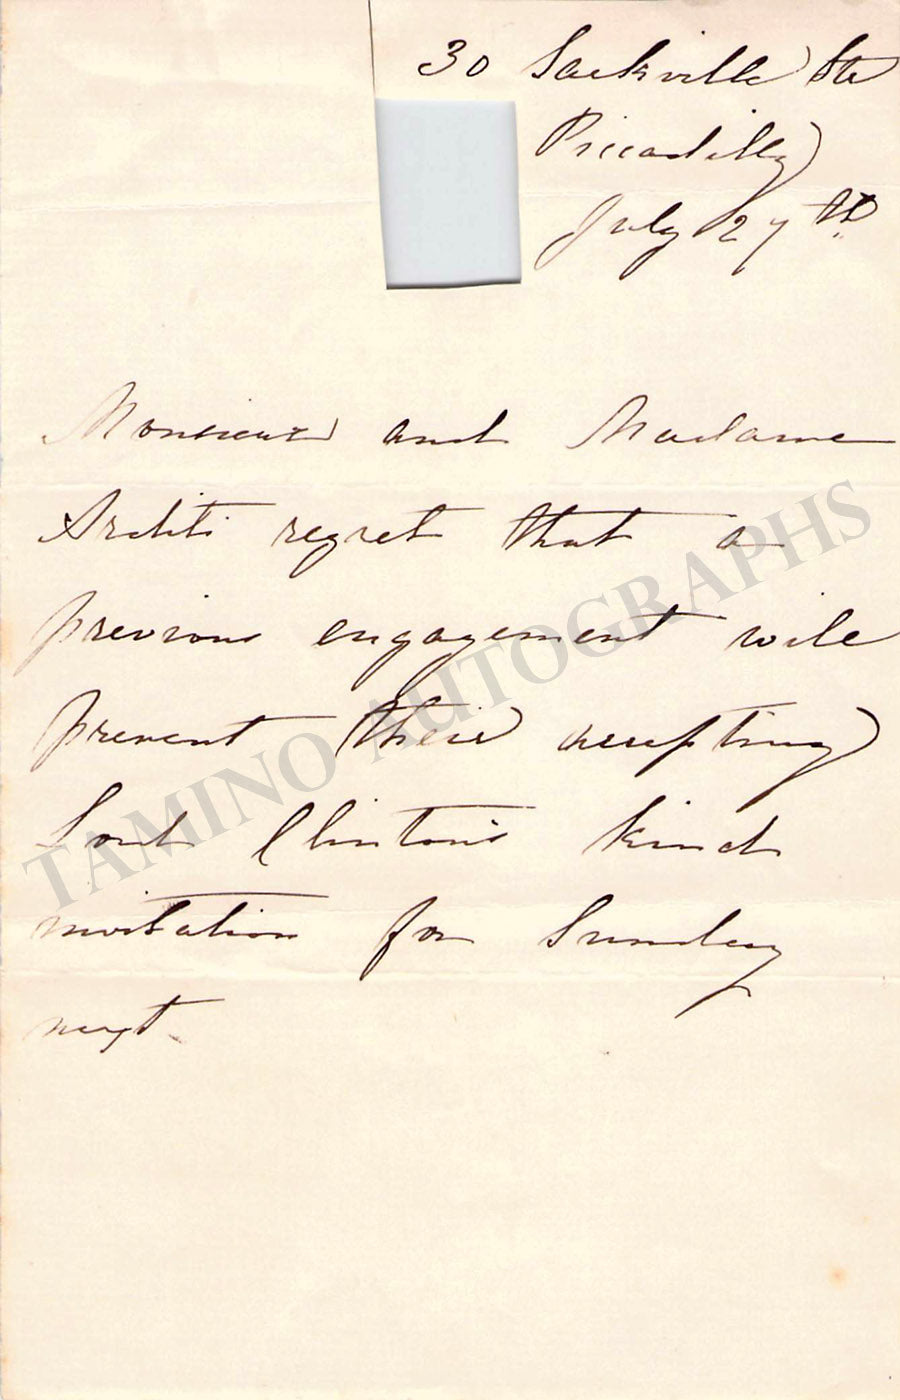 30 Sackville Str
Piccadilly
July 27th
Monsieur and Madame
Arditi regret that a
previous engagement will
prevent their accepting
Lord Clinton's kind
invitation for Sunday
next.
TAMINO AUTOGRAPHS